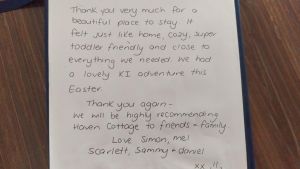 Thank you very much for a
beautiful place to stay. It
felt just like home, cozy, super
toddler friendly and close to
everything we needed. We had
a lovely KI adventure this
Easter.
Thank you again -
We will be highly recommending
Haven Cottage to friends + family
Love Simon, mel
Scarlett, Sammy + daniel
xx